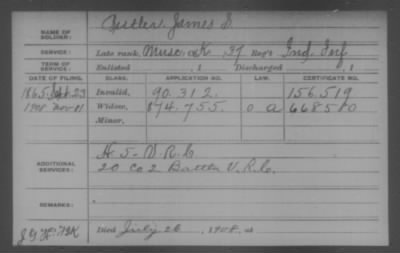 NAME OF SOLDIER: James
SERVICE: Late rank, Musc K, 37 Reg't Ind. Inf
TERM OF SERVICE: Enlisted , 1 Discharged , 1
DATE OF FILING. CLASS. APPLICATION NO. LAW. CERTIFICATE NO.
1865 Sept 23 Invalid, 90.312. 156.519
1908 Nov 21 Widow, 874.755 0 a 668580
Minor,
ADDITIONAL SERVICES: H 5- V R C
20 Co 2 Battn V.R.C.
REMARKS:
Died July 26, 1908, at